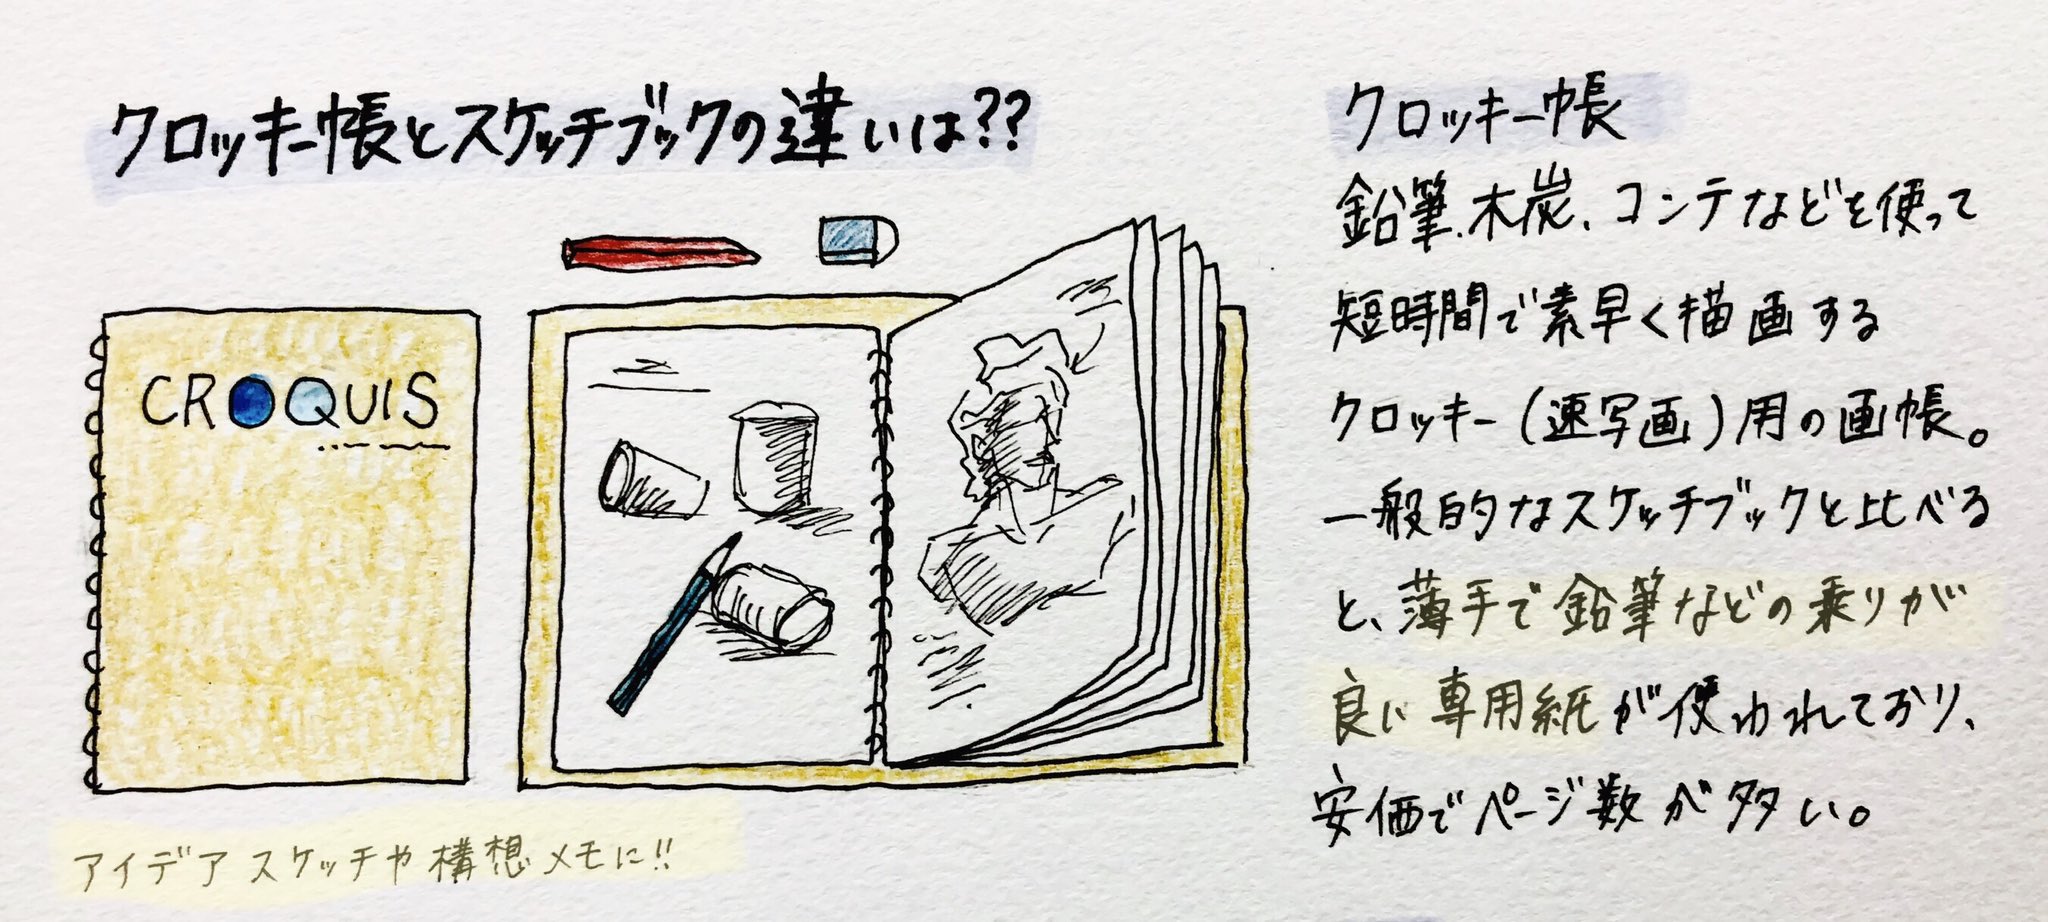 クロッキー帳とスケッチブックの違いは??
CROQUIS
アイデアスケッチや構想メモに!!
クロッキー帳
鉛筆、木炭、コンテなどを使って
短時間で素早く描画する
クロッキー(速写画)用の画帳。
一般的なスケッチブックと比べる
と、薄手で鉛筆などの乗りが
良い専用紙が使われており、
安価でページ数が多い。